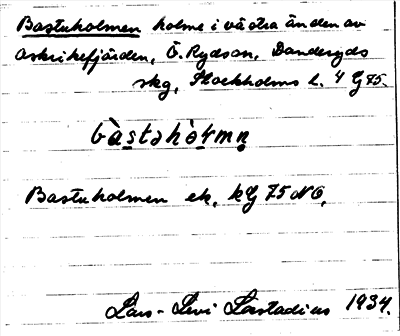 Bastuholmen holme i västra änden av
Askrikefjärden, Ö. Rydsön, Danderyds
skg, Stockholms l. 4 G 75.
bàstəhòłmn̥
Bastuholmen ek, kG 75 NO,
Lars-Levi Læstadius 1934.